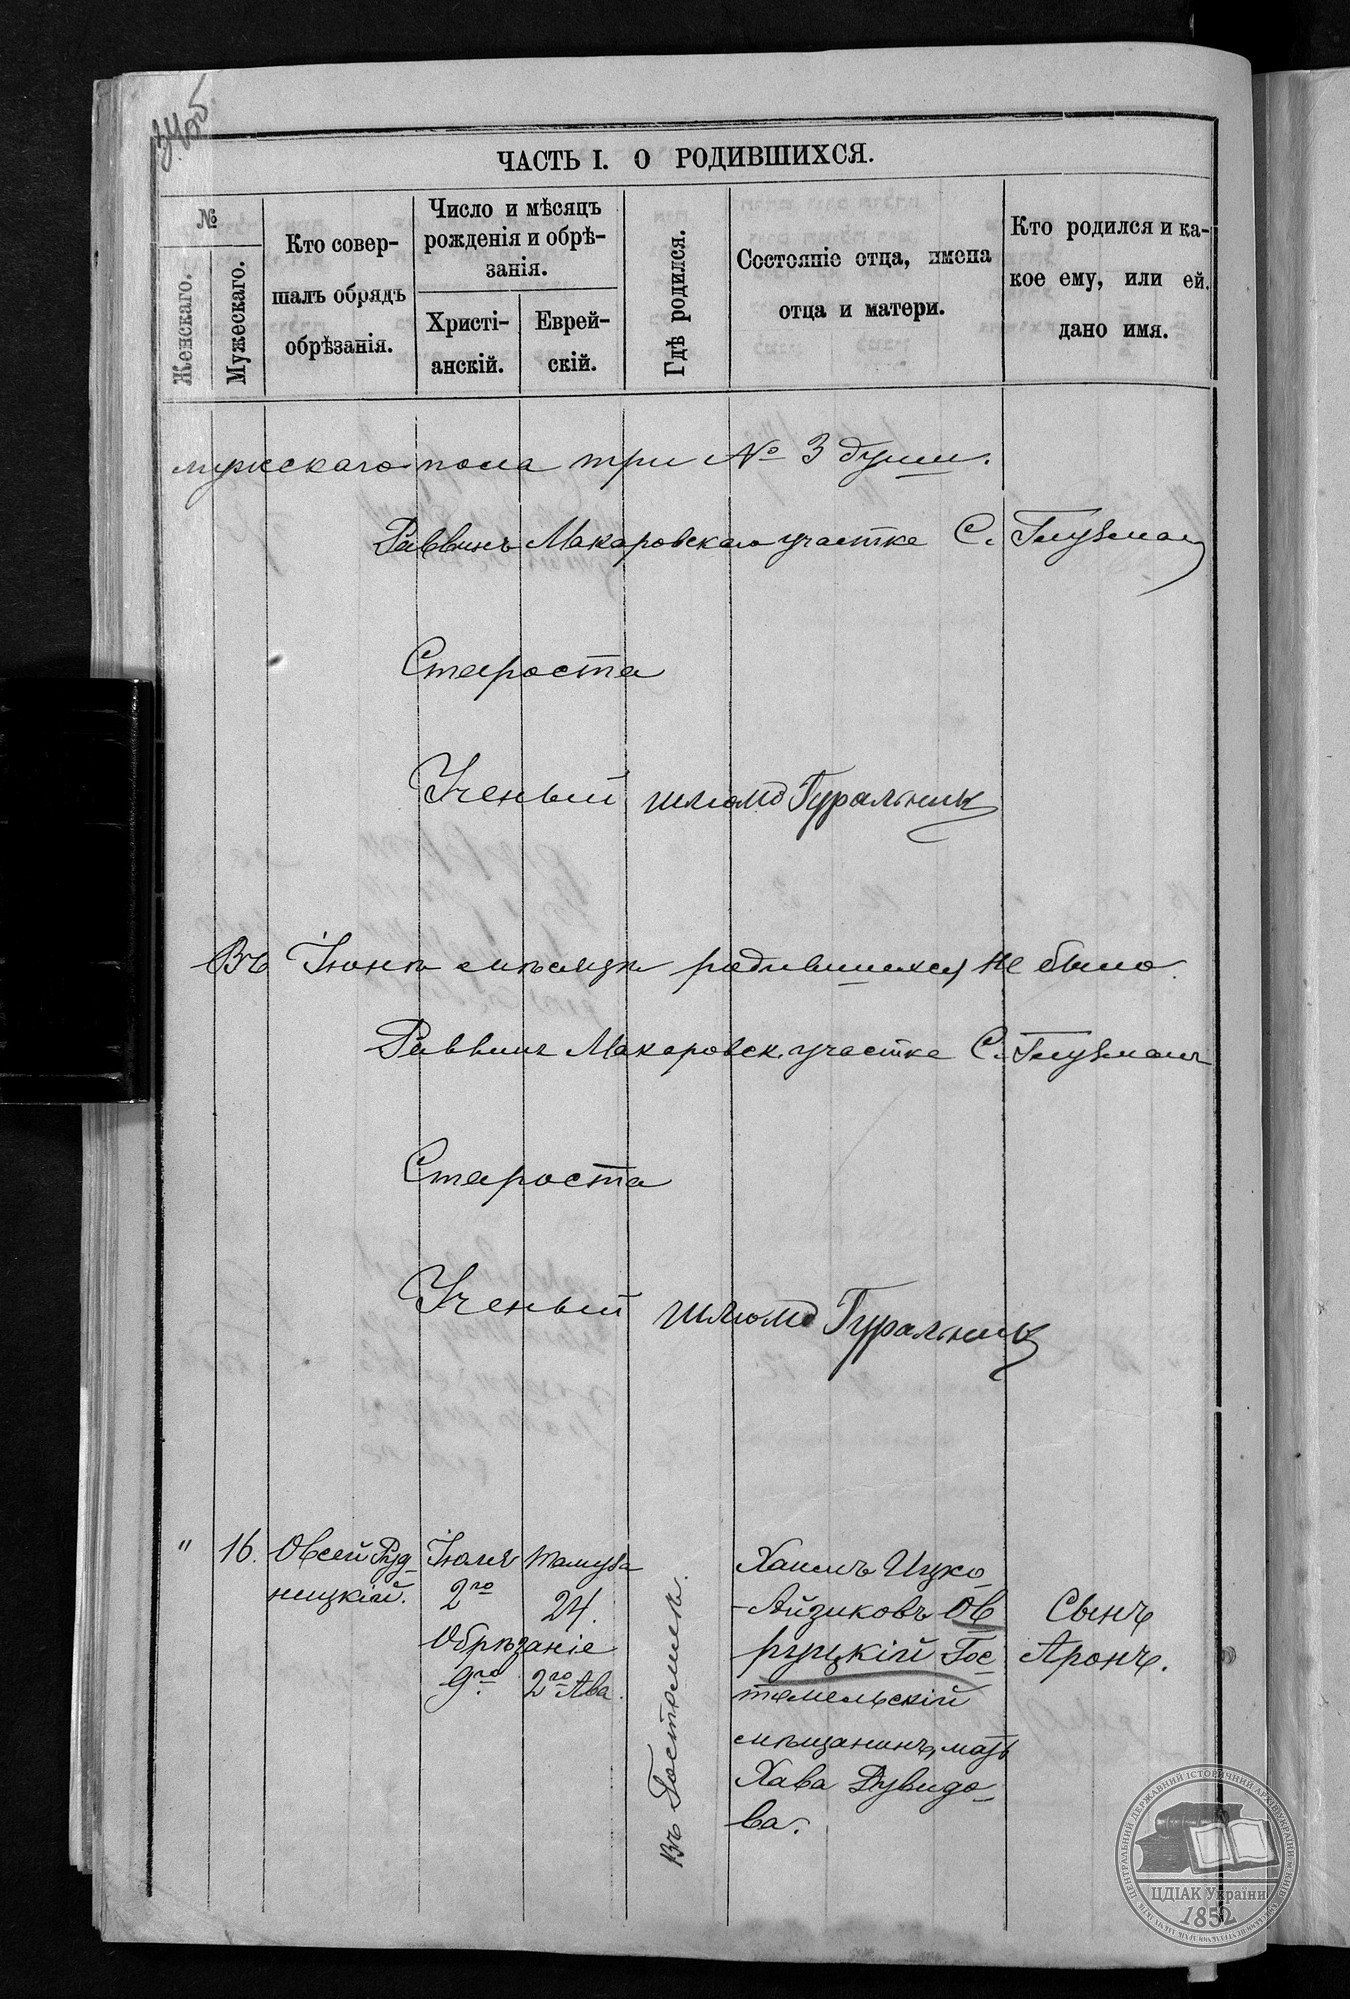 34об
ЧАСТЬ I. О РОДИВШИХСЯ.
№
Женскаго.
Мужескаго.
Кто совер-
шалъ обрядъ
обрѣзанія.
Число и мѣсяцъ
рожденія и обрѣ-
занія.
Христі-
анскій.
Еврей-
скій.
Гдѣ родился.
Состояніе отца, имена
отца и матери.
Кто родился и ка-
кое ему, или ей.
дано имя.
мужескаго пола три № 3 души.
Раввинъ Макаровскаго участка С. Глузман
Староста
Ученый Шлиомо Гуральник
Въ Іюнѣ мѣсяцѣ родившихся не было.
Раввинъ Макаровск. участка С. Глузманъ
Староста
Ученый Шлиомо Гуральник
" 16. Овсей Руд-
ницкій.
Іюля
2го
Тамуза
24.
Обрѣзаніе
9го. 2го Ава.
Въ Гостомлѣ.
Хаимъ Ицко-
-Айзиковъ Ов
руцкій Гос-
томельскій
мѣщанинъ, мать
Хава Дувидо-
ва.
Сынъ
Аронъ.
ЦЕНТРАЛЬНИЙ ДЕРЖАВНИЙ ІСТОРИЧНИЙ АРХІВ УКРАЇНИ, М. КИЇВ
ЦДІАК України
1852